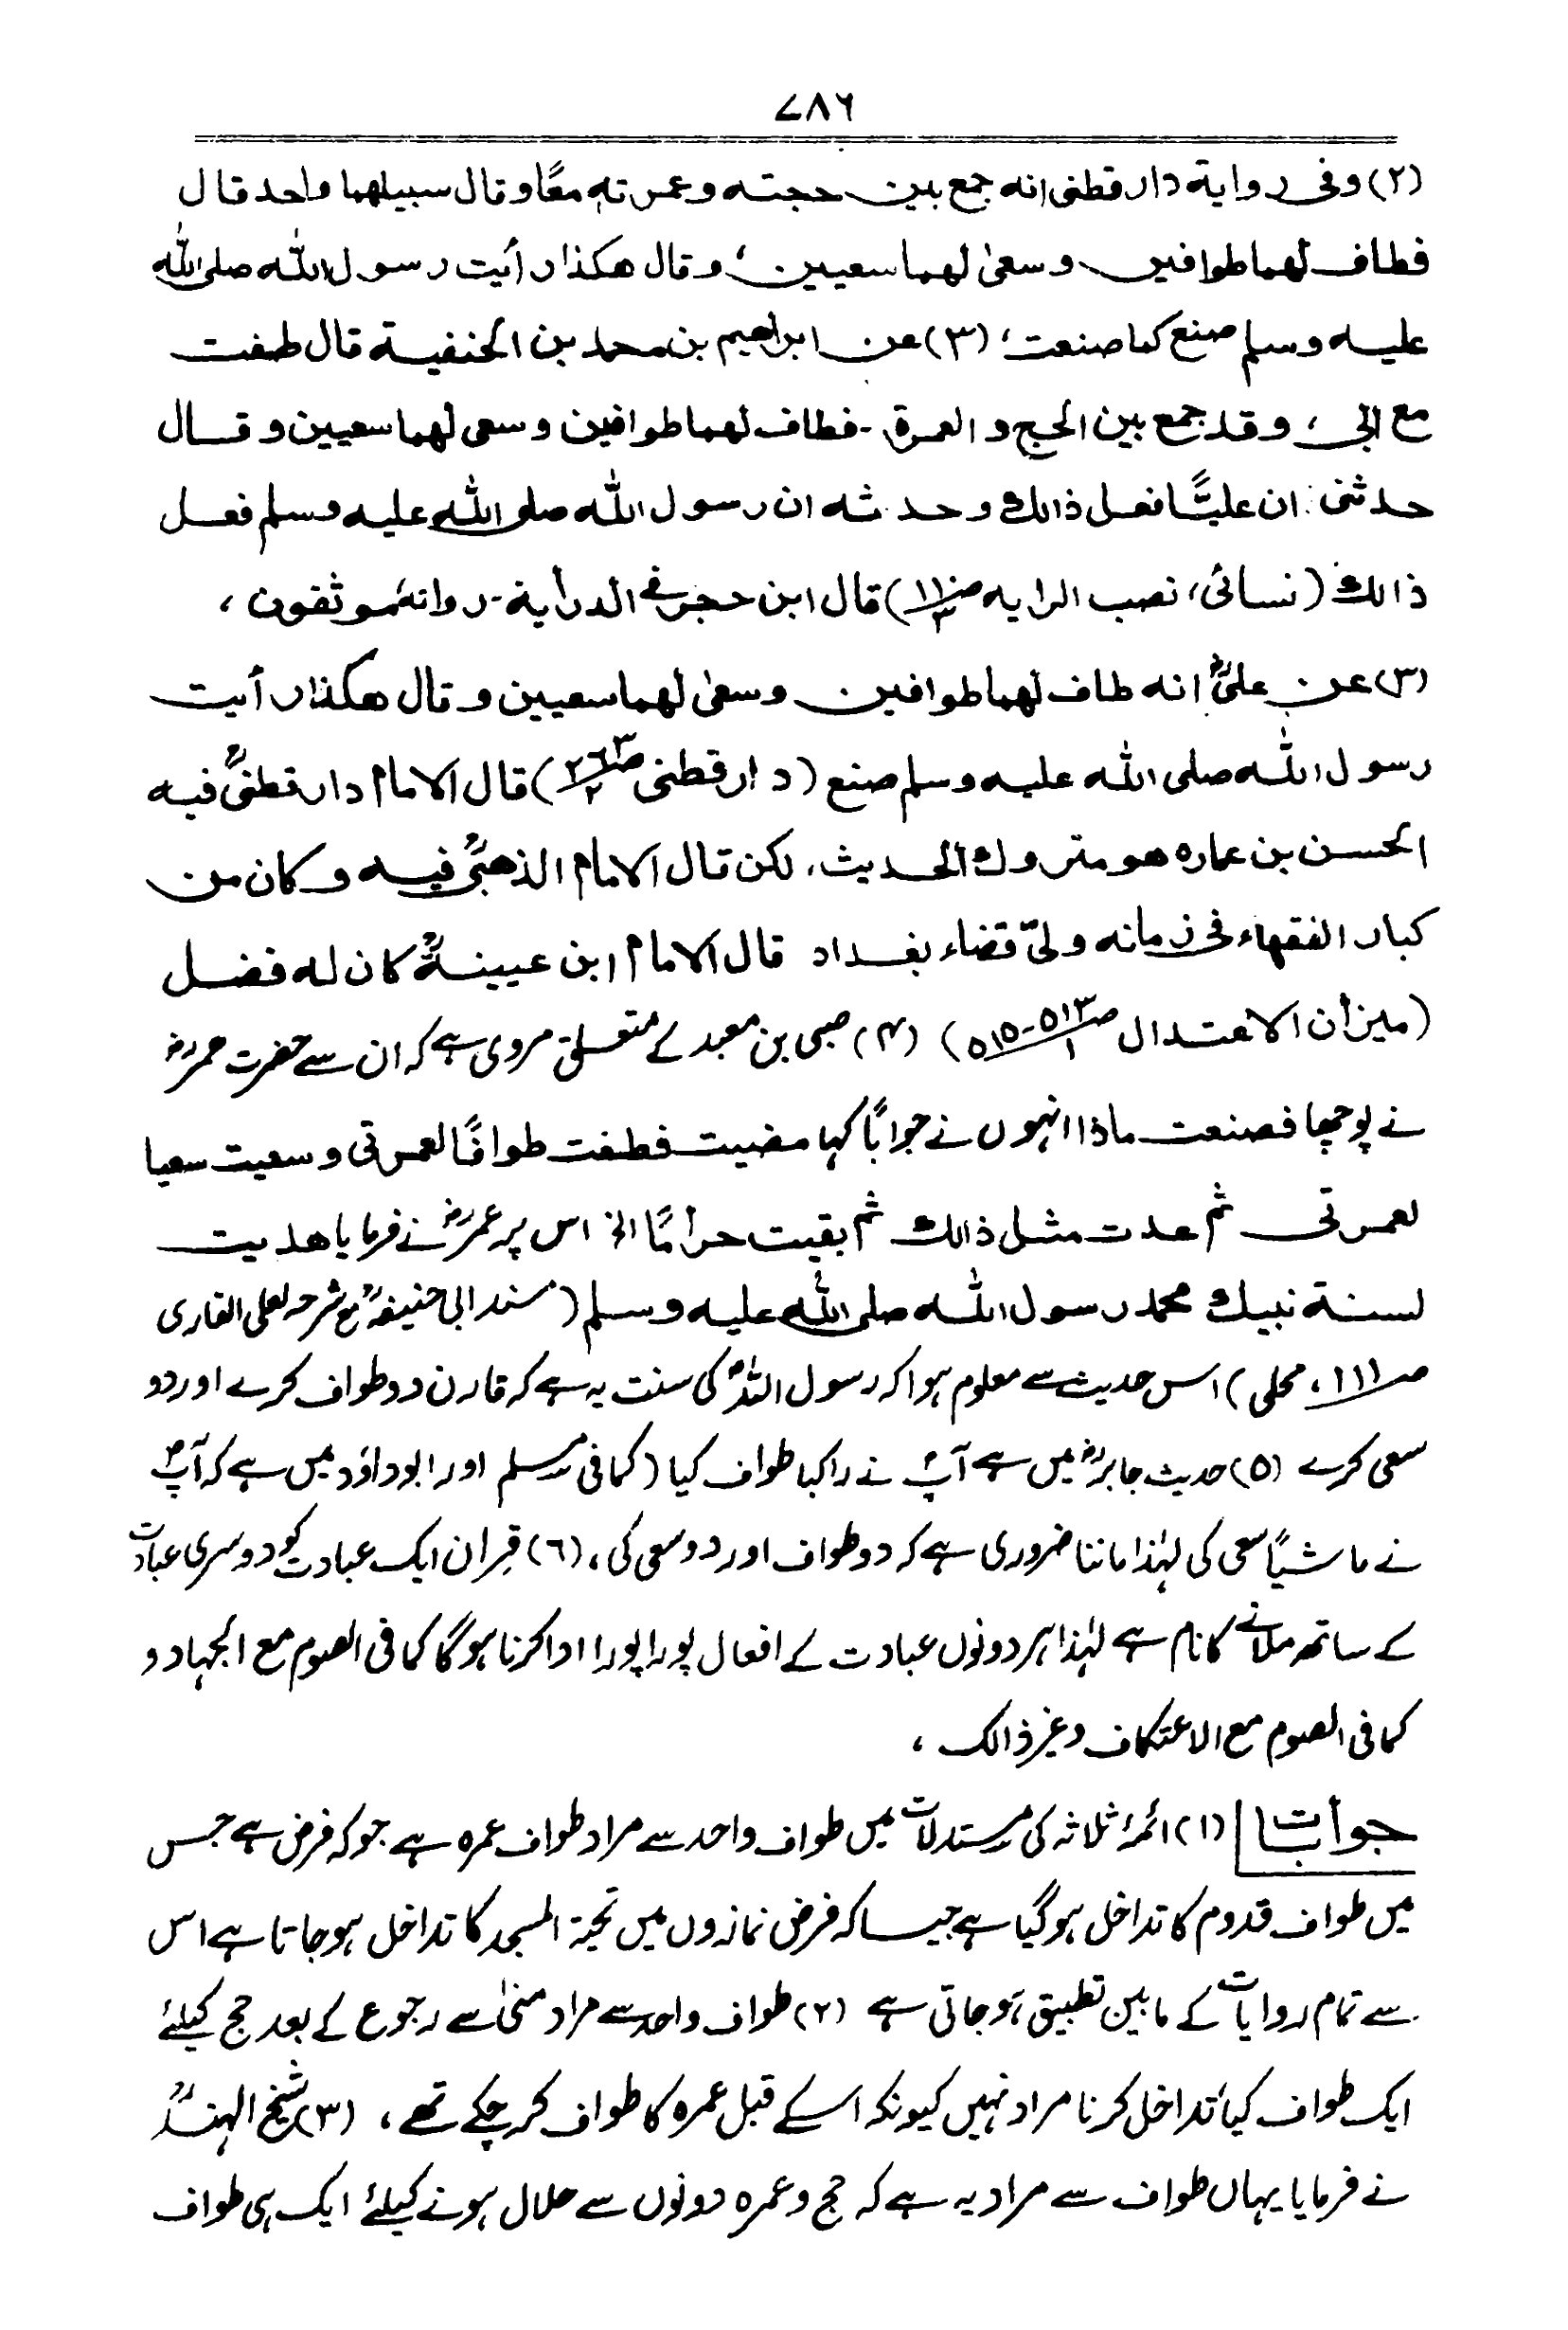 ۷۸۶
(۲) وفی روایة دار قطنی انه جمع بین حجته وعمرته معًا وقال سبیلهما واحد قال
فطاف لهما طوافین وسعیٰ لهما سعیین، وقال هکذا رأیت رسول الله صلی الله
علیه وسلم صنع کما صنعت، (۳) عن ابراهیم بن محمد بن الحنفیة قال طفت
مع ابی، وقد جمع بین الحج و العمرة۔ فطاف لهما طوافین وسعی لهما سعیین وقال
حدثنی ان علیًّا فعل ذالك وحدثه ان رسول الله صلی الله علیه وسلم فعل
ذالك (نسائی، نصب الرایه ص۱۱۱/۳) قال ابن حجر فی الدرأیة۔ رواته موثقون،
(۳) عن علیؓ انه طاف لهما طوافین وسعیٰ لهما سعیین وقال هکذا رأیت
رسول الله صلی الله علیه وسلم صنع (دار قطنی ص۲۶۳/۲) قال الامام دار قطنیؒ فیه
الحسن بن عماره هو متروك الحدیث، لکن قال الامام الذهبیؒ فیه وکان من
کبار الفقهاء فی زمانه ولیّ قضاء بغداد قال الامام ابن عیینةؒ کان له فضل
(میزأن الاعتدال ص۵۱۳-۵۱۵/۱) (۴) صبی بن معبد کے متعلق مروی ہے کہ ان سے حضرت عمرؓ
نے پوچھا فصنعت ماذا انہوں نے جوابًا کہا مضیت فطفت طوافًا لعمرتی وسعیت سعیا
لعمرتی ثم عدت مثل ذالك ثم بقیت حرأمًا الخ اس پر عمرؓ نے فرمایا هدیت
لسنة نبیك محمد رسول الله صلی الله علیه وسلم (مسند ابی حنیفہؒ مع شرحہ لعلی القاری
ص۱۱۱، محلی) اس حدیث سے معلوم ہوا کہ رسول اللہؐ کی سنت یہ ہے کہ قارن دو طواف کرے اور دو
سعی کرے (۵) حدیث جابرؓ میں ہے آپؐ نے راکبا طواف کیا (کما فی مسلم اور ابوداؤد میں ہے کہ آپؐ
نے ماشیًا سعی کی لہٰذا ماننا ضروری ہے کہ دو طواف اور دو سعی کی، (۶) قِران ایک عبادت کو دوسری عبادت
کے ساتھ ملانے کا نام ہے لہٰذا ہر دونوں عبادت کے افعال پورا پورا ادا کرنا ہوگا کما فی الصوم مع الجہاد و
کما فی الصوم مع الاعتکاف وغیر ذالک،
جوأبات (۱) ائمۂ ثلاثہ کی مستدلات میں طواف واحد سے مراد طواف عمرہ ہے جو کہ فرض ہے جس
میں طواف قدوم کا تداخل ہوگیا ہے جیسا کہ فرض نمازوں میں تحیۃ المسجد کا تداخل ہوجاتا ہے اس
سے تمام روایات کے مابین تطبیق ہوجاتی ہے (۲) طواف واحد سے مراد منیٰ سے رجوع کے بعد حج کیلئے
ایک طواف کیا تداخل کرنا مراد نہیں کیونکہ اسکے قبل عمرہ کا طواف کرچکے تھے، (۳) شیخ الہندؒ
نے فرمایا یہاں طواف سے مراد یہ ہے کہ حج وعمرہ دونوں سے حلال ہونے کیلئے ایک ہی طواف